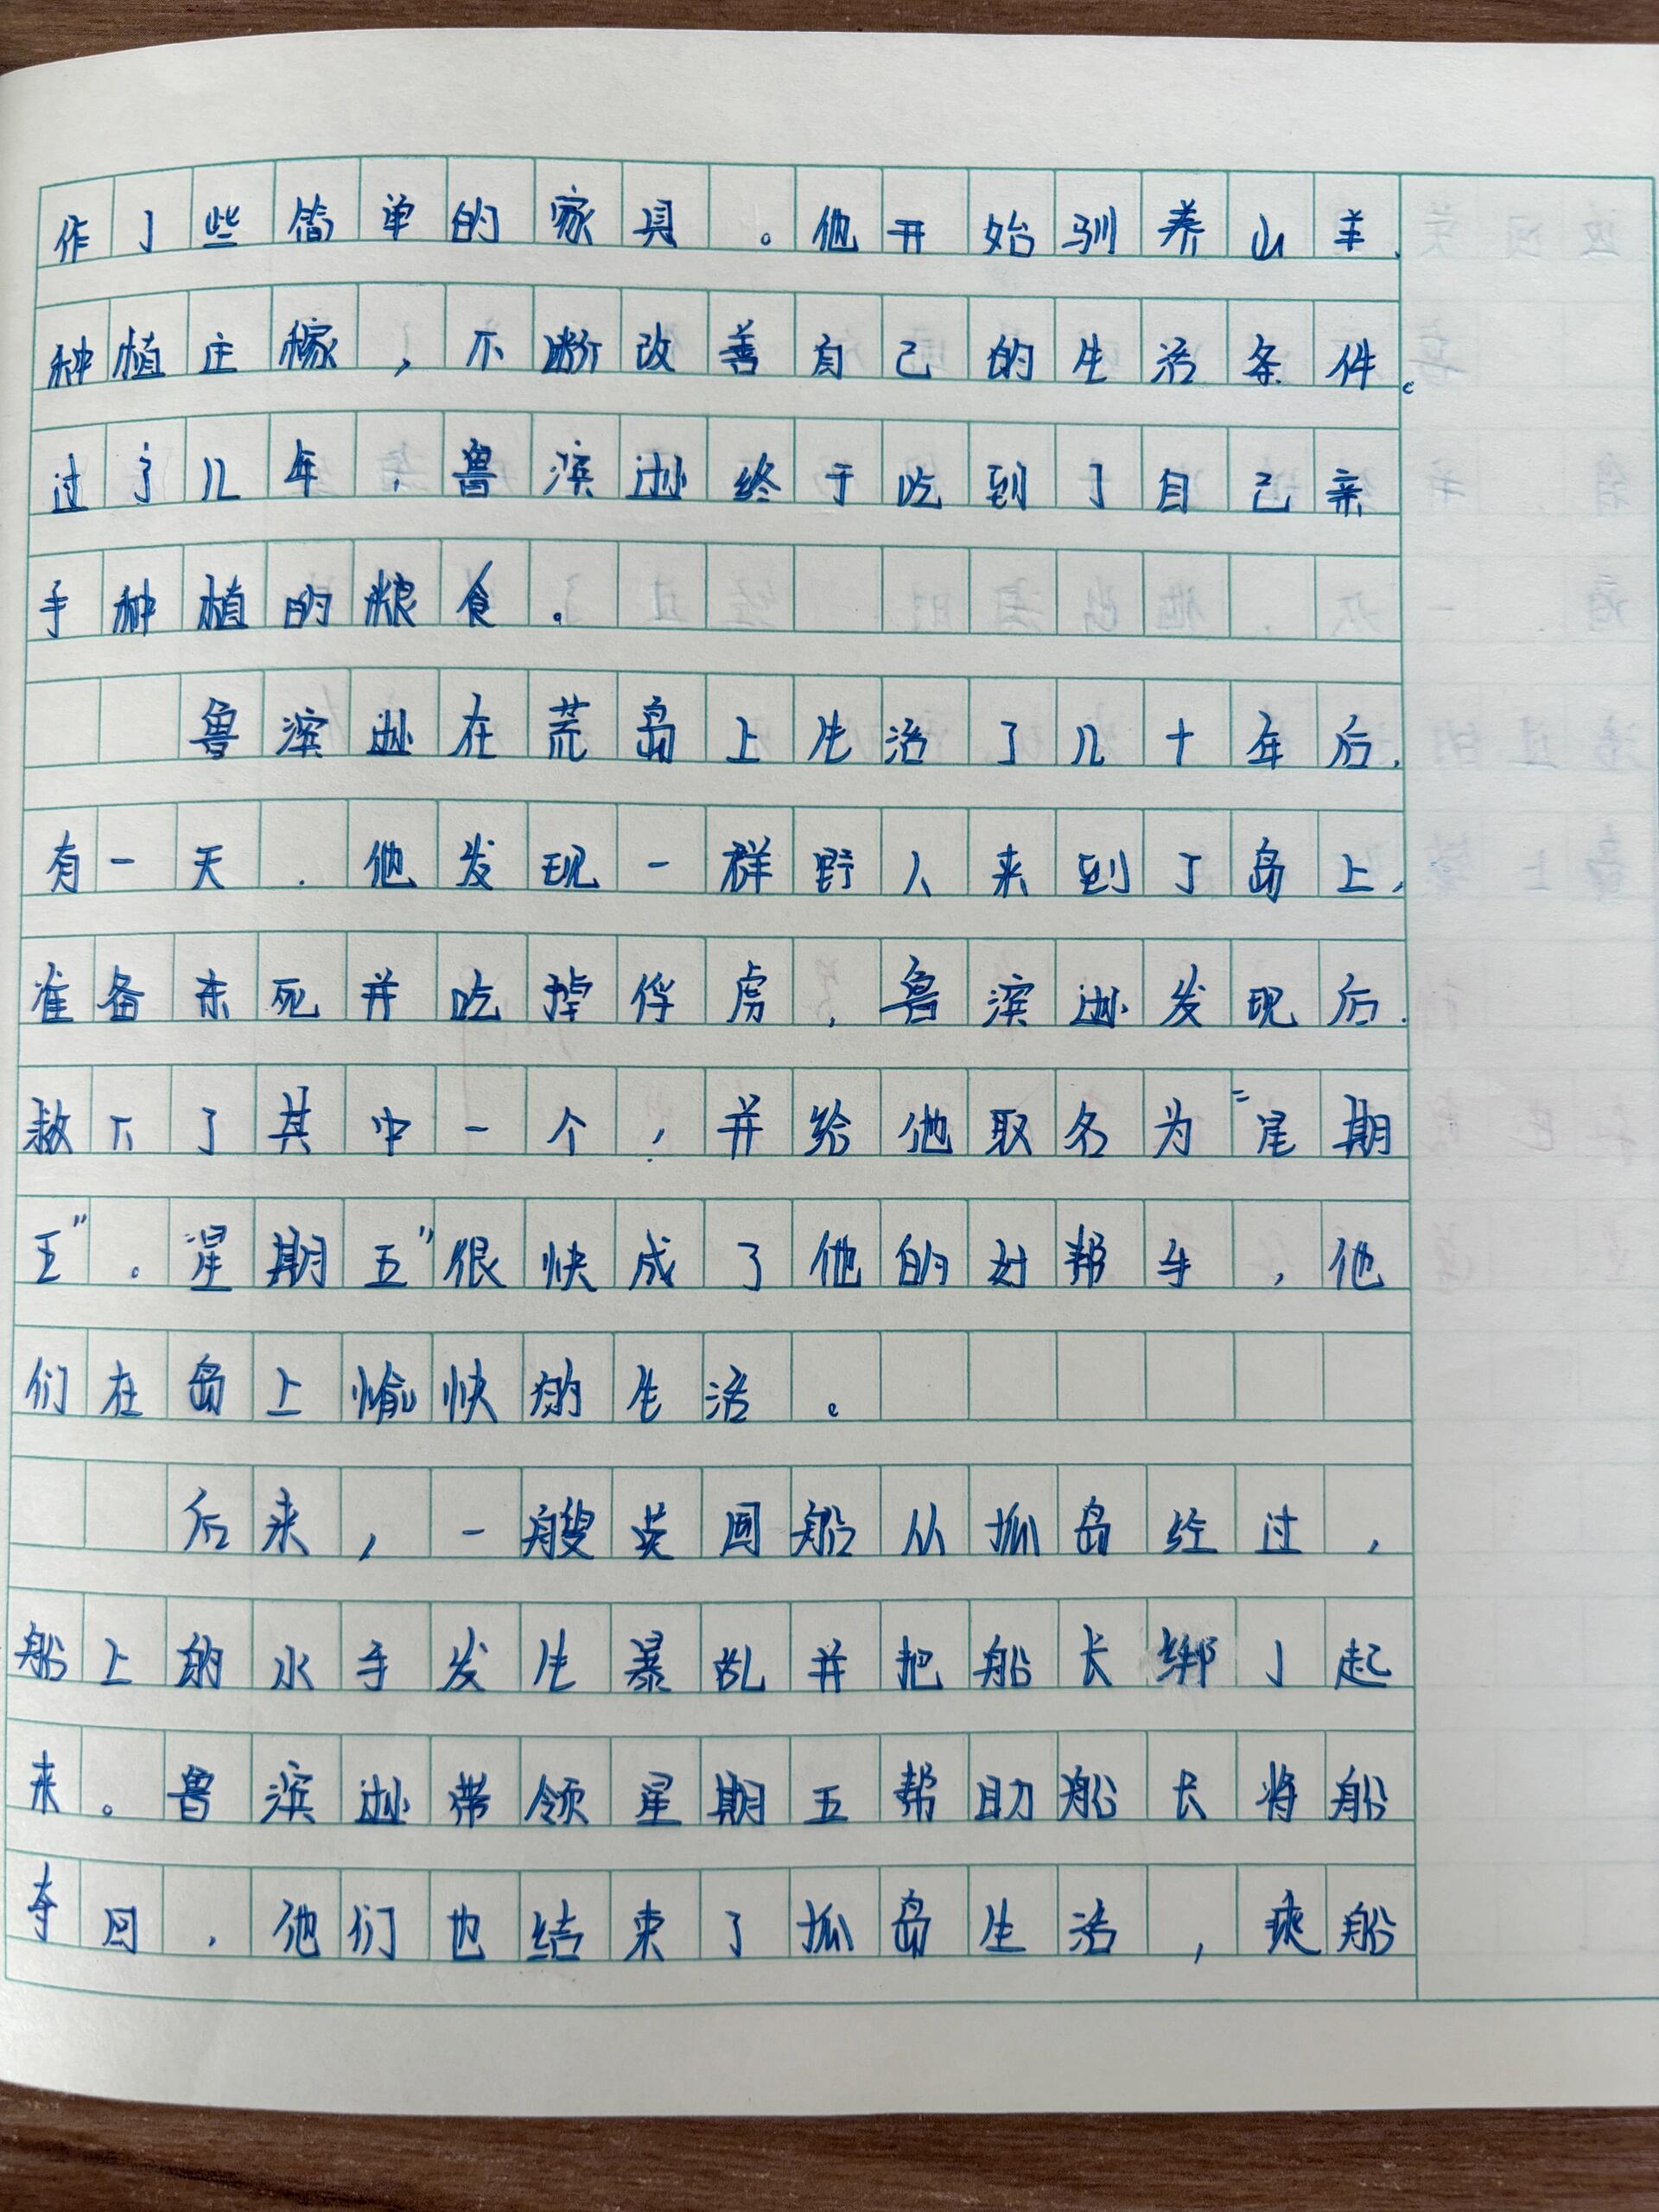 作了些简单的家具。他开始驯养山羊,
种植庄稼,不断改善自己的生活条件。
过了几年,鲁滨逊终于吃到了自己亲
手种植的粮食。
鲁滨逊在荒岛上生活了几十年后,
有一天,他发现一群野人来到了岛上,
准备杀死并吃掉俘虏,鲁滨逊发现后,
救下了其中一个,并给他取名为“星期
五”。星期五”很快成了他的好帮手,他
们在岛上愉快的生活。
后来,一艘英国船从孤岛经过,
船上的水手发生暴乱并把船长绑了起
来。鲁滨逊带领星期五帮助船长将船
夺回,他们也结束了孤岛生活,乘船